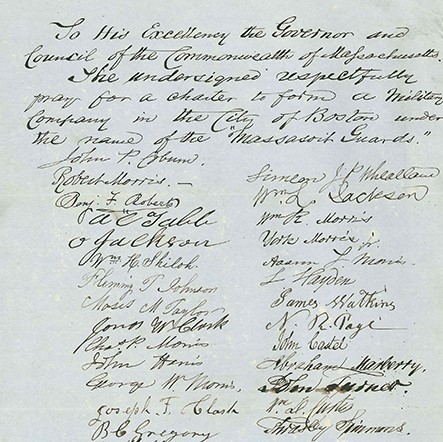 To His Excellency the Governor and
Council of the Commonwealth of Massachusetts.
The undersigned respectfully
pray for a charter to form a Military
Company in the City of Boston under
the name of the "Massasoit Guards."
John P. Coburn.
Robert Morris. —
Benj. F. Roberts
A E Tabb
O Jackson
Wm. H. Shiloh
Fleming T Johnson
Moses M Taylor
Jonas W Clark
Chas K Morris
John Harris
George W Morris,
Joseph F. Clash
B C Gregory
Simeon J P Wheelland
Wm L Jackson
Wm K. Morris
York Morris jr.
Aaron L
L Hayden
James Watkins
N. R. Page
John Castel
Abraham Marberry,
Turner.
Wm. D.
Simmons